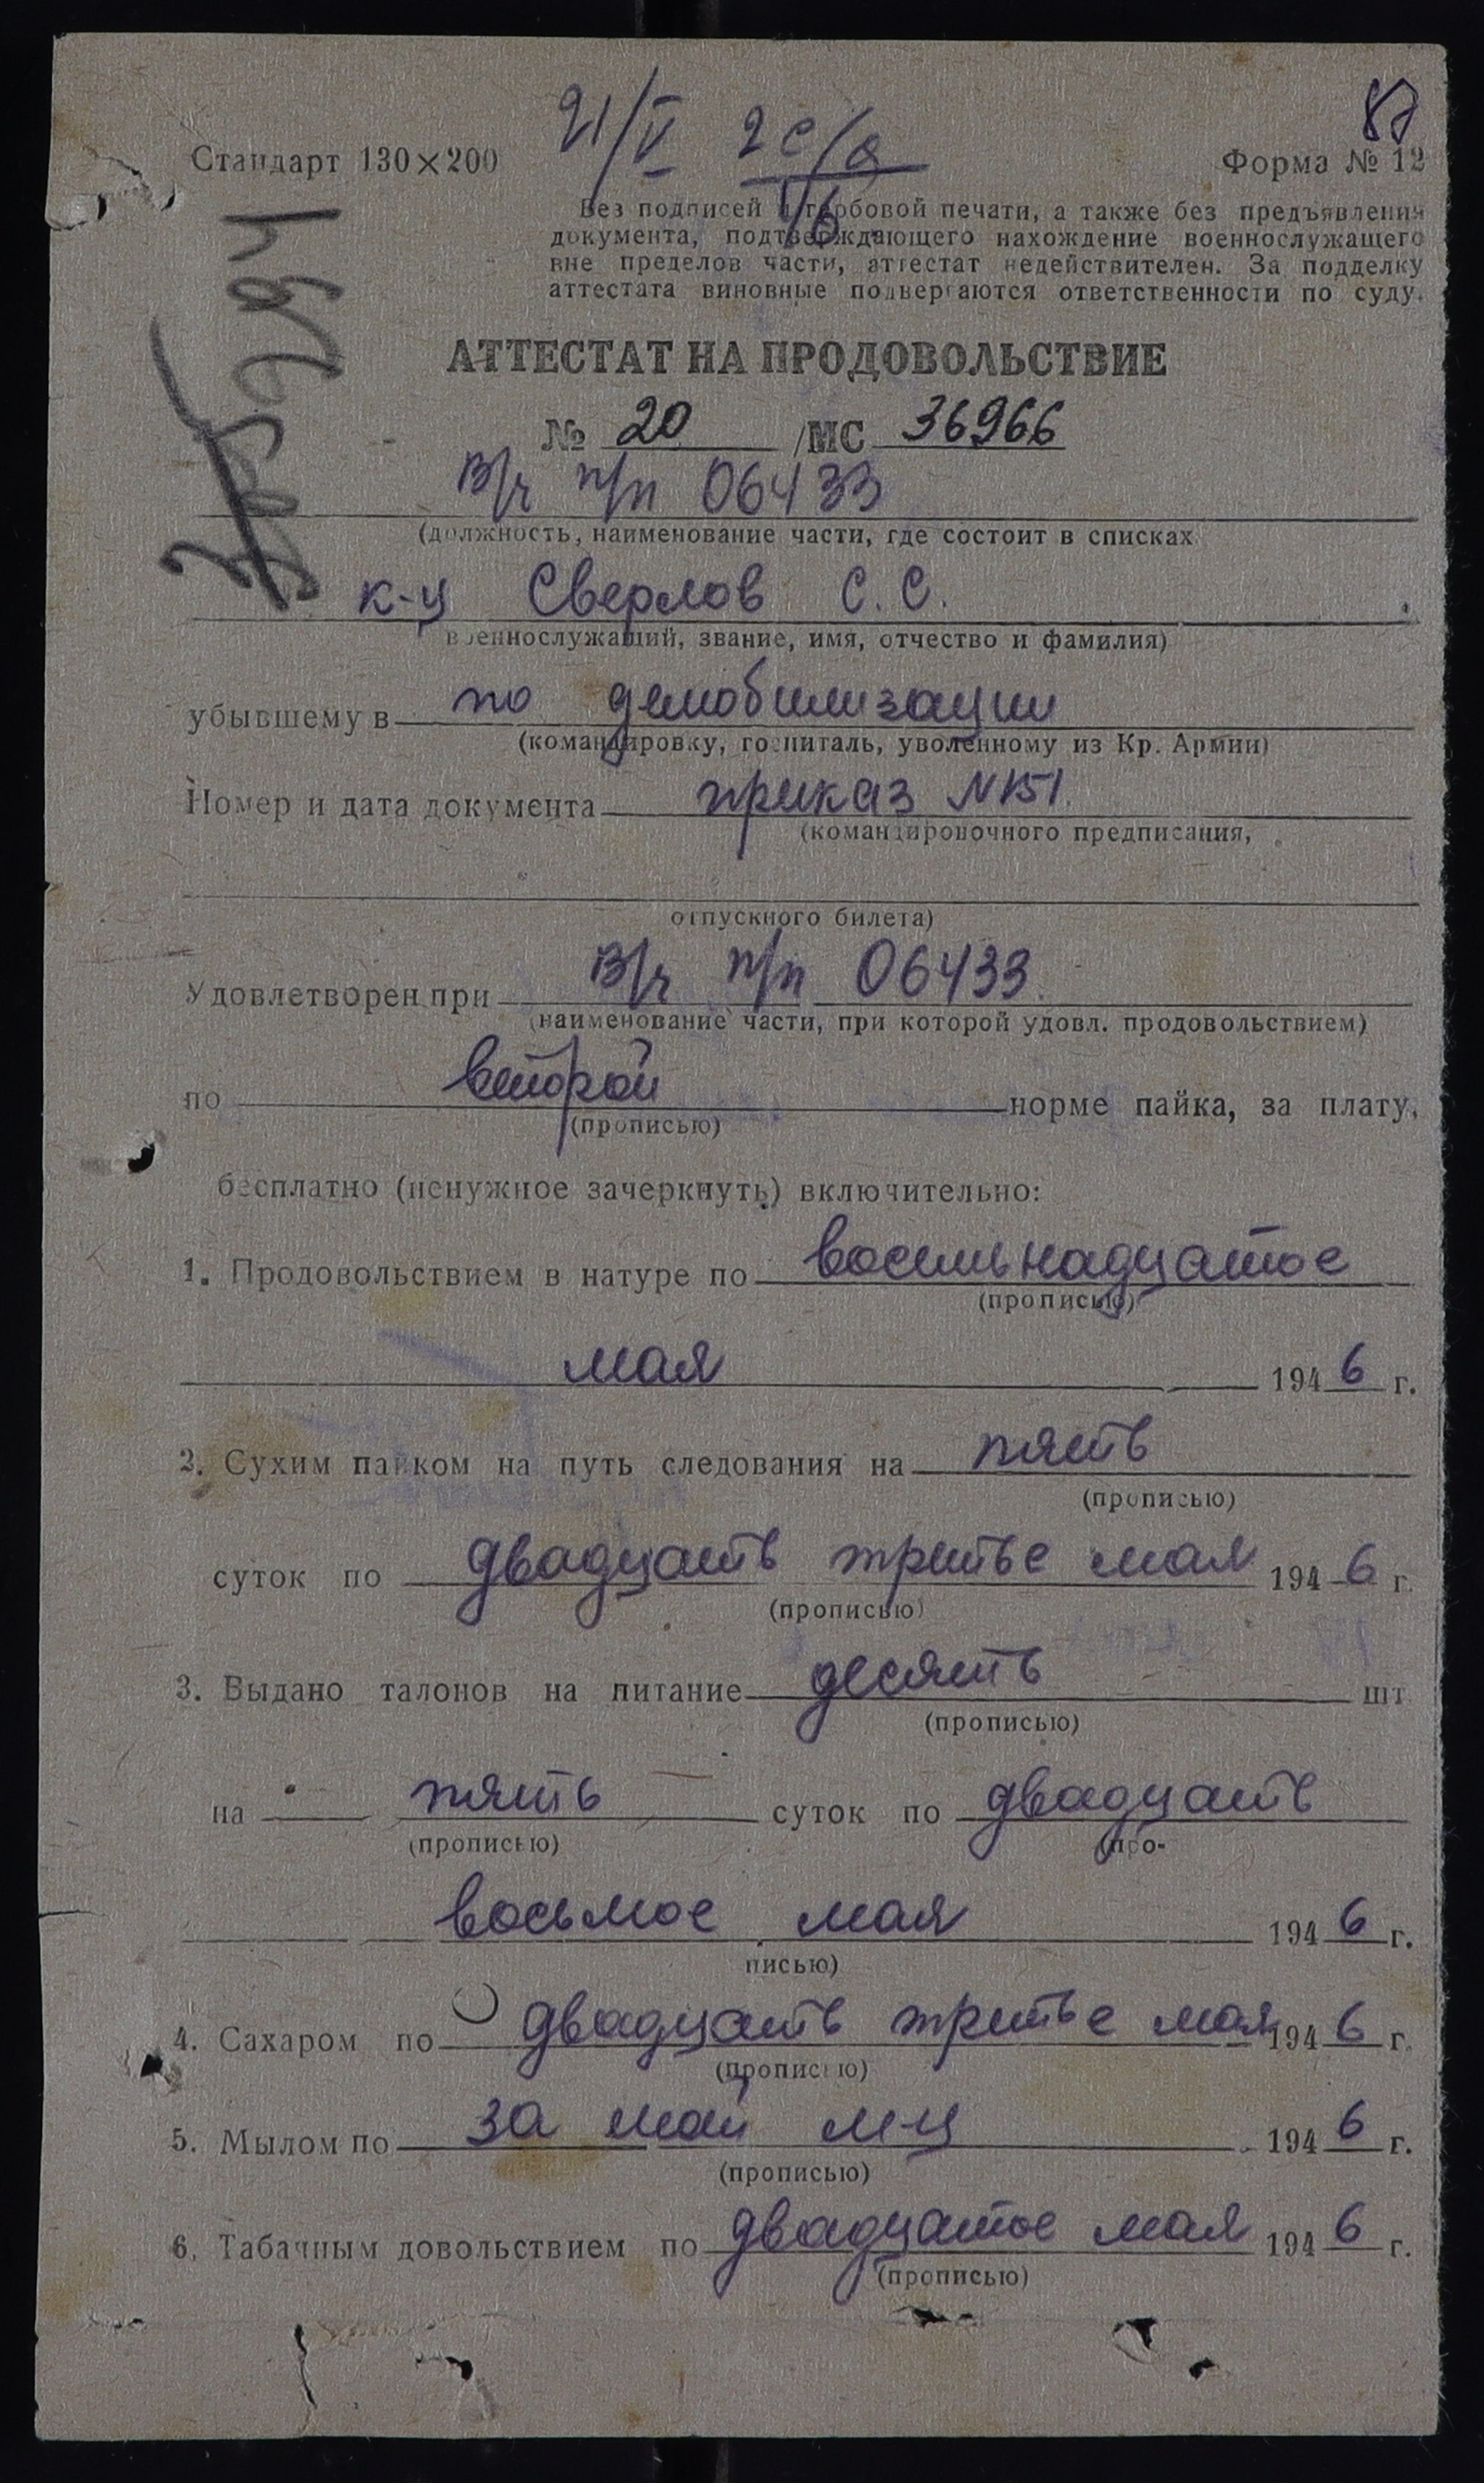 21/V 2 с/д
1/6
87
Стандарт 130×200
Форма № 12
Без подписей и гербовой печати, а также без предъявления
документа, подтверждающего нахождение военнослужащего
вне пределов части, аттестат недействителен. За подделку
аттестата виновные подвергаются ответственности по суду.
АТТЕСТАТ НА ПРОДОВОЛЬСТВИЕ
№ 20 /МС 36966
В/ч п/п 06433
(должность, наименование части, где состоит в списках
к-ц Сверлов С. С.
военнослужащий, звание, имя, отчество и фамилия)
убывшему в по демобилизации
(командировку, госпиталь, уволенному из Кр. Армии)
Номер и дата документа приказ №151.
(командировочного предписания,
отпускного билета)
Удовлетворен при В/ч п/п 06433.
(наименование части, при которой удовл. продовольствием)
по второй норме пайка, за плату,
(прописью)
бесплатно (ненужное зачеркнуть) включительно:
1. Продовольствием в натуре по восемьнадцатое
(прописью)
мая 1946 г.
2. Сухим пайком на путь следования на пять
(прописью)
суток по двадцать третье мая 1946 г.
(прописью)
3. Выдано талонов на питание десять шт.
(прописью)
на пять суток по двадцать
(прописью) (про-
восьмое мая 1946 г.
писью)
4. Сахаром по двадцать третье мая 1946 г.
(прописью)
5. Мылом по за май м-ц 1946 г.
(прописью)
6. Табачным довольствием по двадцатое мая 1946 г.
(прописью)